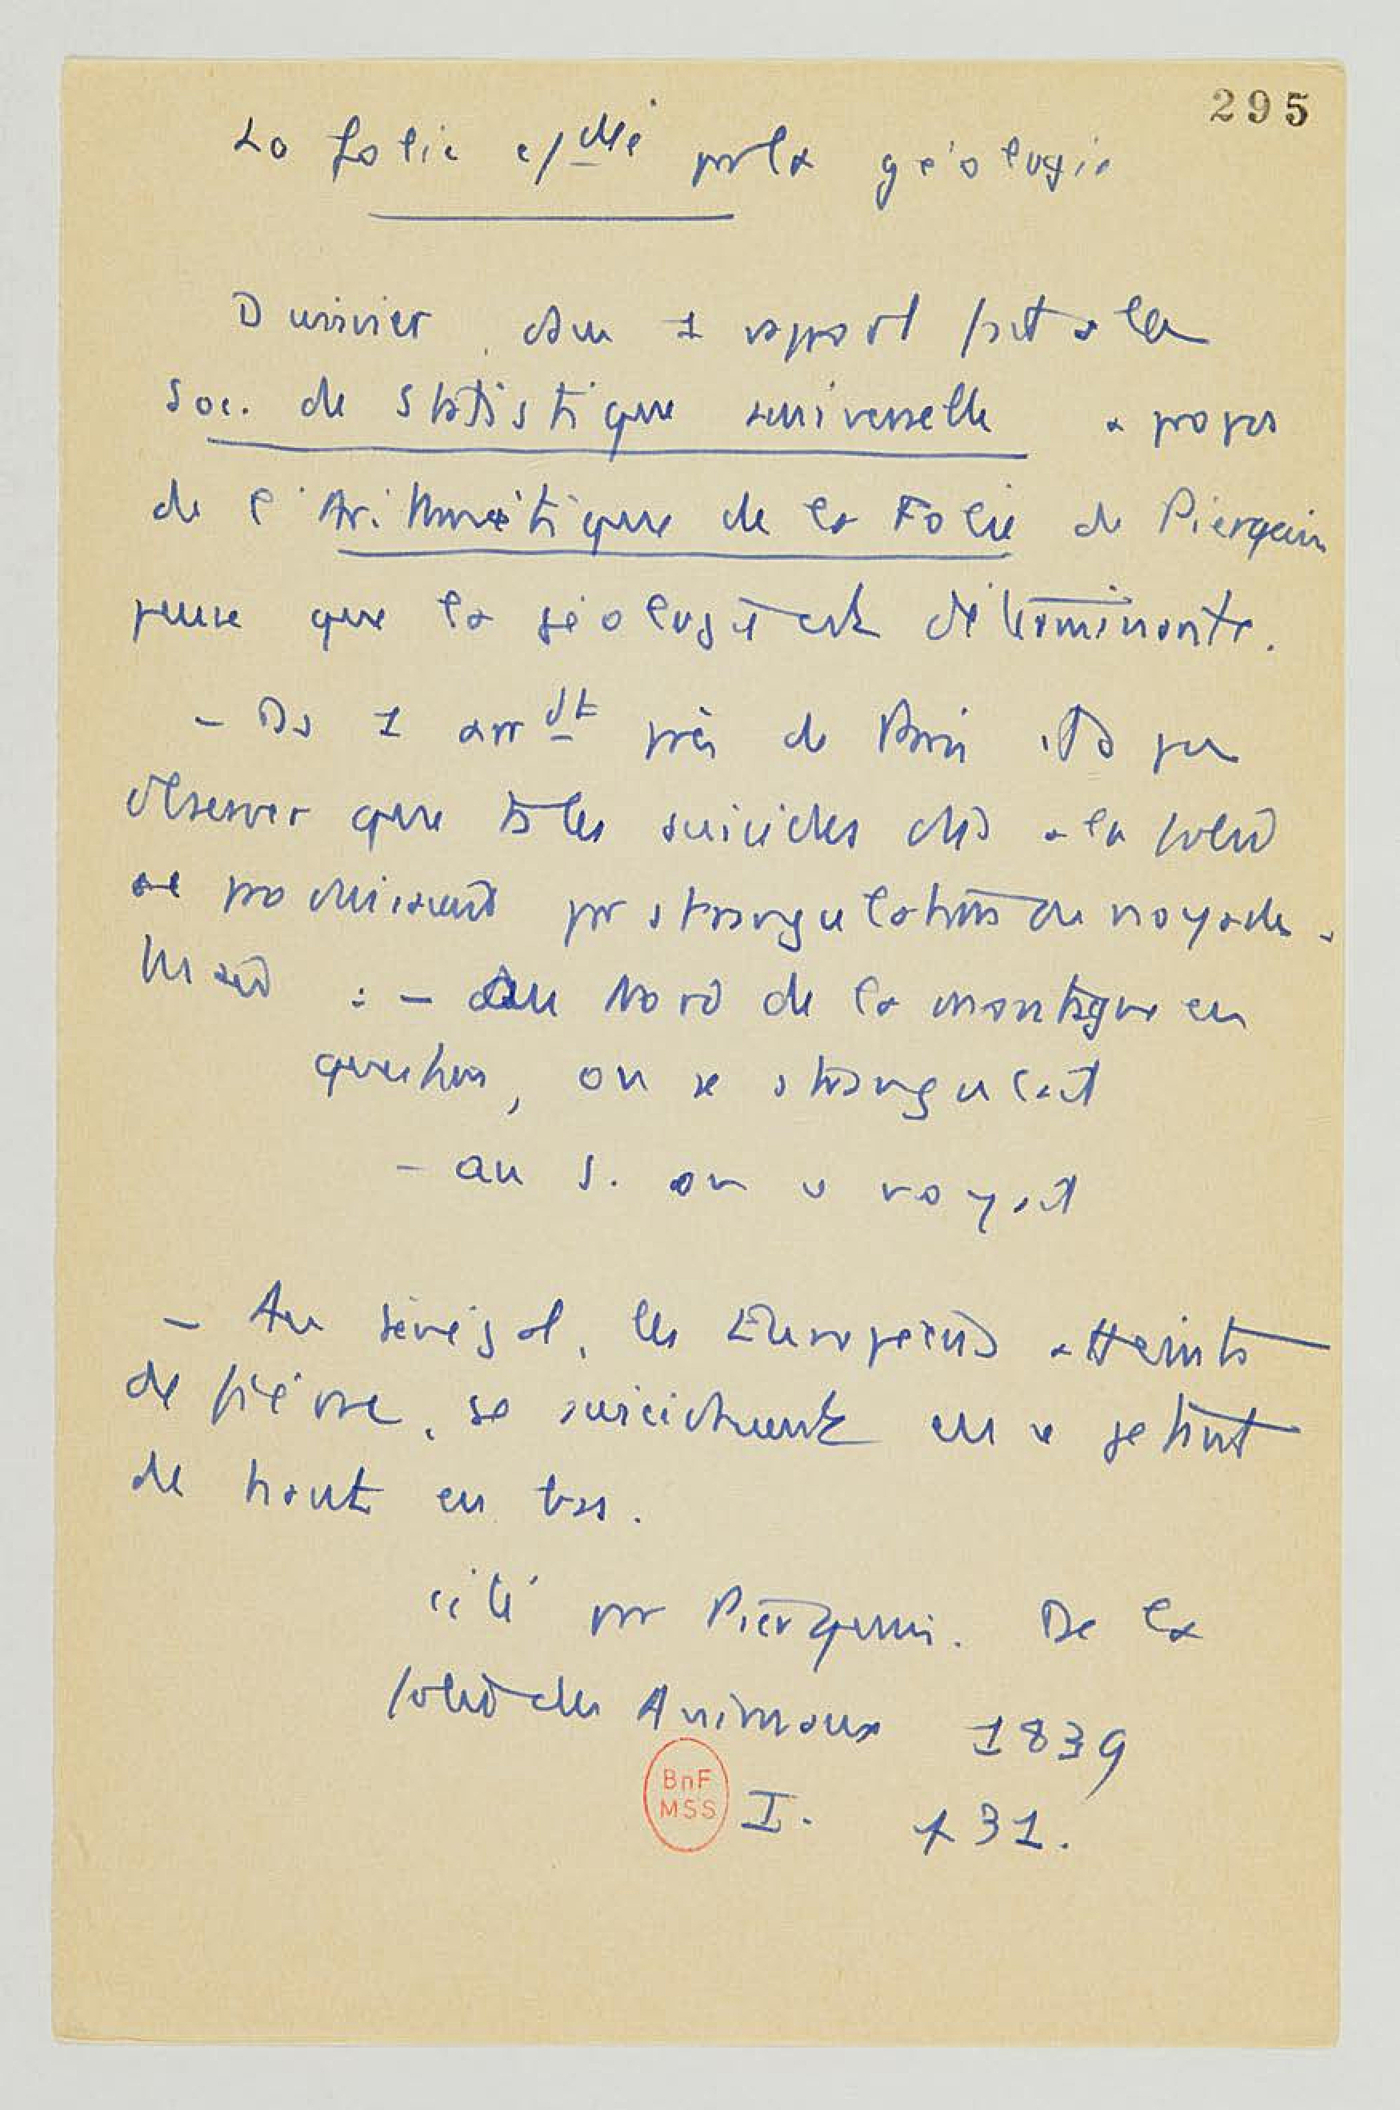 295
La folie c/dlé par la géologie
Duvivier, dans 1 rapport fait à la
Soc. de Statistique universelle à propos
de l'Arithmétique de la Folie de Pierquin
pense que la géologie est déterminante.
– Ds 1 arrdt près de Paris, il a pu
observer que ts les suicides dus à la folie
se produisent par strangulation ou noyade.
Mais : – Au Nord de la montagne en
question, on se strangulait
– au S. on se noyait
– Au Sénégal, les Européens atteints
de fièvre, se suicident en se jetant
de haut en bas.
cité par Pierquin. De la
folie des Animaux 1839
BnF
MSS
I. 31.